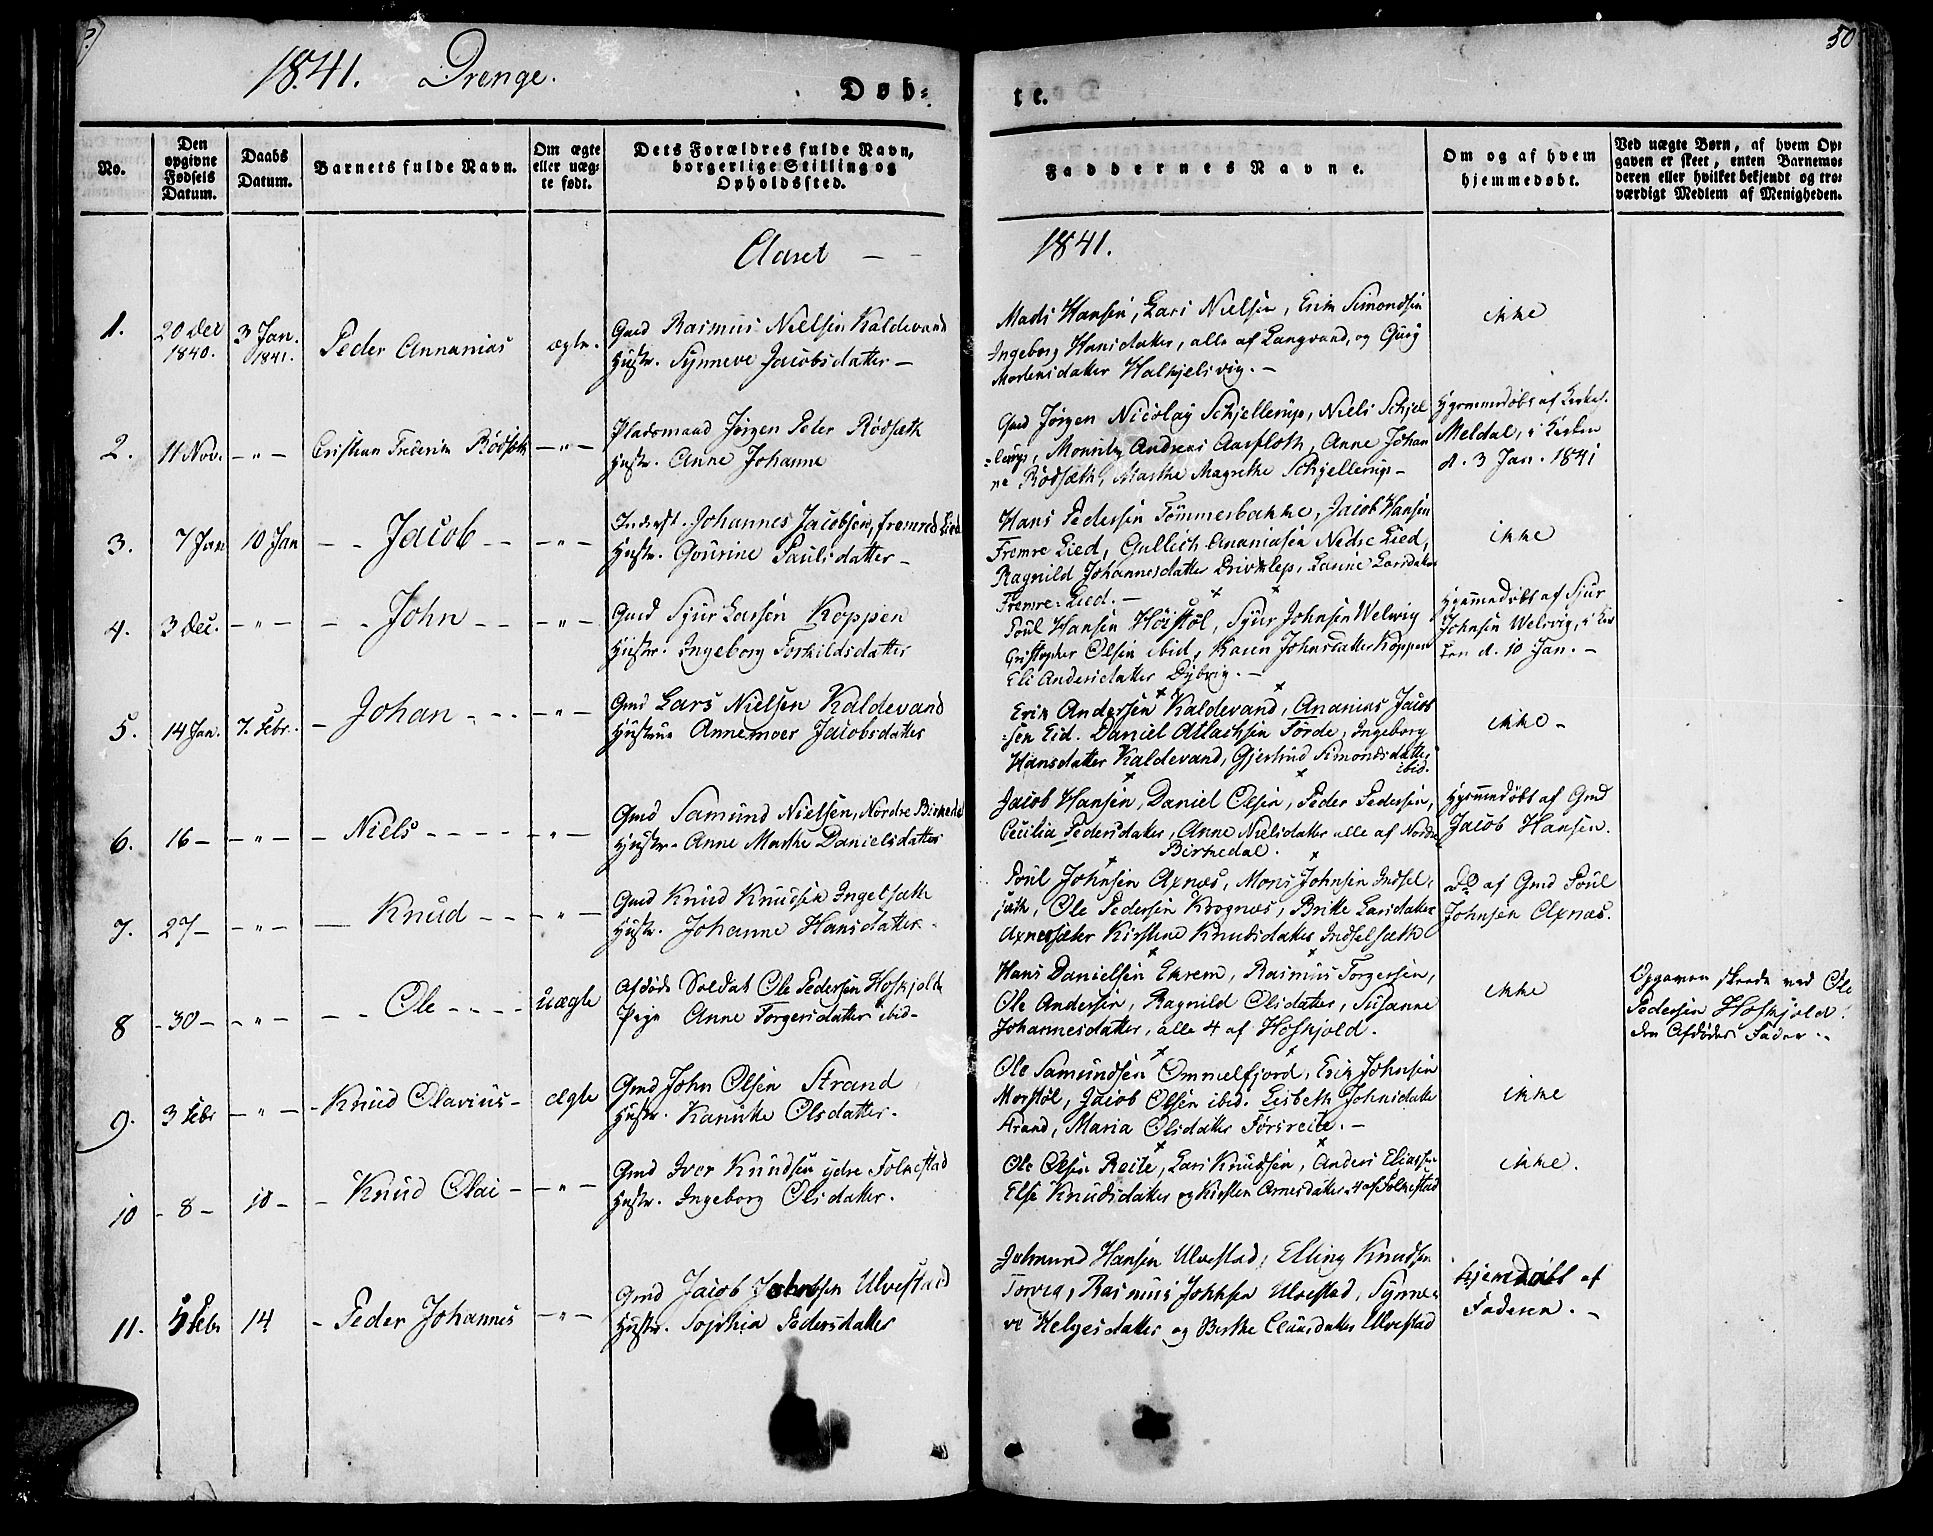 1841. Drenge.
Døb=
te.
50
No.
Den opgivne Fødsels Datum.
Daabs Datum.
Barnets fulde Navn.
Om ægte eller uæg-te født.
Dets Forældres fulde Navn, borgerlige Stilling og Opholdssted.
Faddernes Navne.
Om og af hvem hjemmedøbt.
Ved uægte Børn, af hvem Op-
gaven er skeet, enten Barnemo-
deren eller hvilket bekjendt og tro-
værdigt Medlem af Menigheden.
Aaret — -
1841.
1. 20 Dec 1840. 3 Jan. 1841. Peder Annanias ægte.
Gmd Rasmus Nielsen Kaldevand
Hustr. Synneve Jacobsdatter —
Mads Hansen, Lars Nielsen, Erik Simondsen
Ingeborg Hansdatter, alle af Langvand, og Guri
Mortensdatter Halkjelsvig. —
ikke
2. 11 Nov. — " — Cristian Frederik Rödsæth — " —
Pladsmand Jørgen Peter Rödsæth
Hustr. Anne Johanne
Gmd Jørgen Nicolay Schjellerup, Niels Schjel
=lerup, Andreas Aarfloth, Anne Johan
ne Rödsæth, Marthe Magrethe Schjellerup —
Hjemmedøbt af
Meldal, i Kirken
d. 3 Jan. 1841
3. 7 Jan 10 Jan — - Jacob - - — " —
Inderst. Johannes Jacobsen, fremre Lied
Hustr. Gourine Paulsdatter —
Hans Pedersen Tömmerbakke, Jacob Hansen
Fremre Lied, Gullich Ananiasen Nedre Lied,
Ragnild Johannesdatter Drivklep, Larsdatter
Fremre Lied. —
ikke
4. 3 Dec. — " — — - John - - — " —
Gmd Sjur Larsen Koppen
Hustr. Ingeborg Torkildsdatter
Poul Hansen Höistöl, Sjur Johnsen Welwig
Cristopher Olsen ibid, Karen Johnsdatter Koppen
Eli Andersdatter Dybvig. —
Hjemmedøbt af Sjur
Johnsen Welvig, i Kir
ken d. 10 Jan. —
5. 14 Jan. 7. Febr. — Johan - - - — " —
Gmd Lars Nielsen Kaldevand
Hustrue Annemoer Jacobsdatter
Erik Andersen Kaldevand, Ananias Jacob
=sen Eid. Daniel Atlachsen Förde, Ingeborg
Hansdatter Kaldevand, Gjertrud Simondsdatter
ibid.
ikke —
6. 16 — — " — — Niels - - - - - " —
Gmd Samund Nielsen, Nordre Birkedal
Hustr. Anne Marthe Danielsdatter
Jacob Hansen, Daniel Olsen, Peder Pedersen,
Cecilia Pedersdatter, Anne Nielsdatter alle af Nordre
Birkedal.
Hjemmedøbt af Gmd
Jacob Hansen.
7. 27 — — " — — Knud - - - — " —
Gmd Knud Knudsen Ingelsæth
Hustr. Johanne Hansdatter.
Poul Johnsen Axnæs, Mons Johnsen Indsel-
sæth, Ole Pedersen Krognæs, Britte Larsdatter
Kirstine Knudsdatter Indselsæth
do af Gmd Poul
Johnsen Axnæs.
8 - 30 — - " — — - Ole - - - - uægte
Afdøde Soldat Ole Pedersen Hofkjold
Pige Anne Torgersdatter ibid—
Hans Danielsen Ekrem, Rasmus Torgersen,
Ole Andersen, Ragnild Olsdatter, Susanne
Johannesdatter, alle 4 af Hofkjold.
ikke
Opgaven skeede ved Ole
Pedersen Hofkjold.
den Afdødes Fader.
9. 3 Febr — " — - Knud Olavius - ægte
Gmd John Olsen Strand
Hustr. Kanutte Olsdatter.
Ole Samundsen Ommelfjord, Erik Johnsen
Morstöl, Jacob Olsen ibid. Lisbeth Johnsdatter
Strand, Maria Olsdatter Förreite. —
ikke
10 - 8 — 10 — - Knud Olai - — " —
Gmd Iver Knudsen ydre Folkestad
Hustr. Ingeborg Olsdatter.
Ole Olsen Reite, Lars Knudsen, Anders Eliassen
Else Knudsdatter og Kirsten Arnesdatter, 4 af Folkestad
ikke.
11. 5 Febr 14 - Peder Johannes — " —
Gmd Jacob Jakobsen Ulvestad
Hustr. Sophia Pedersdatter
Hansen Ulvestad, Elling Knudsen
Rasmus Ulvestad, Synne-
ve Helgesdatter og Berthe Clausdatter Ulvestad
Hjemdøbt af
Faderen. —